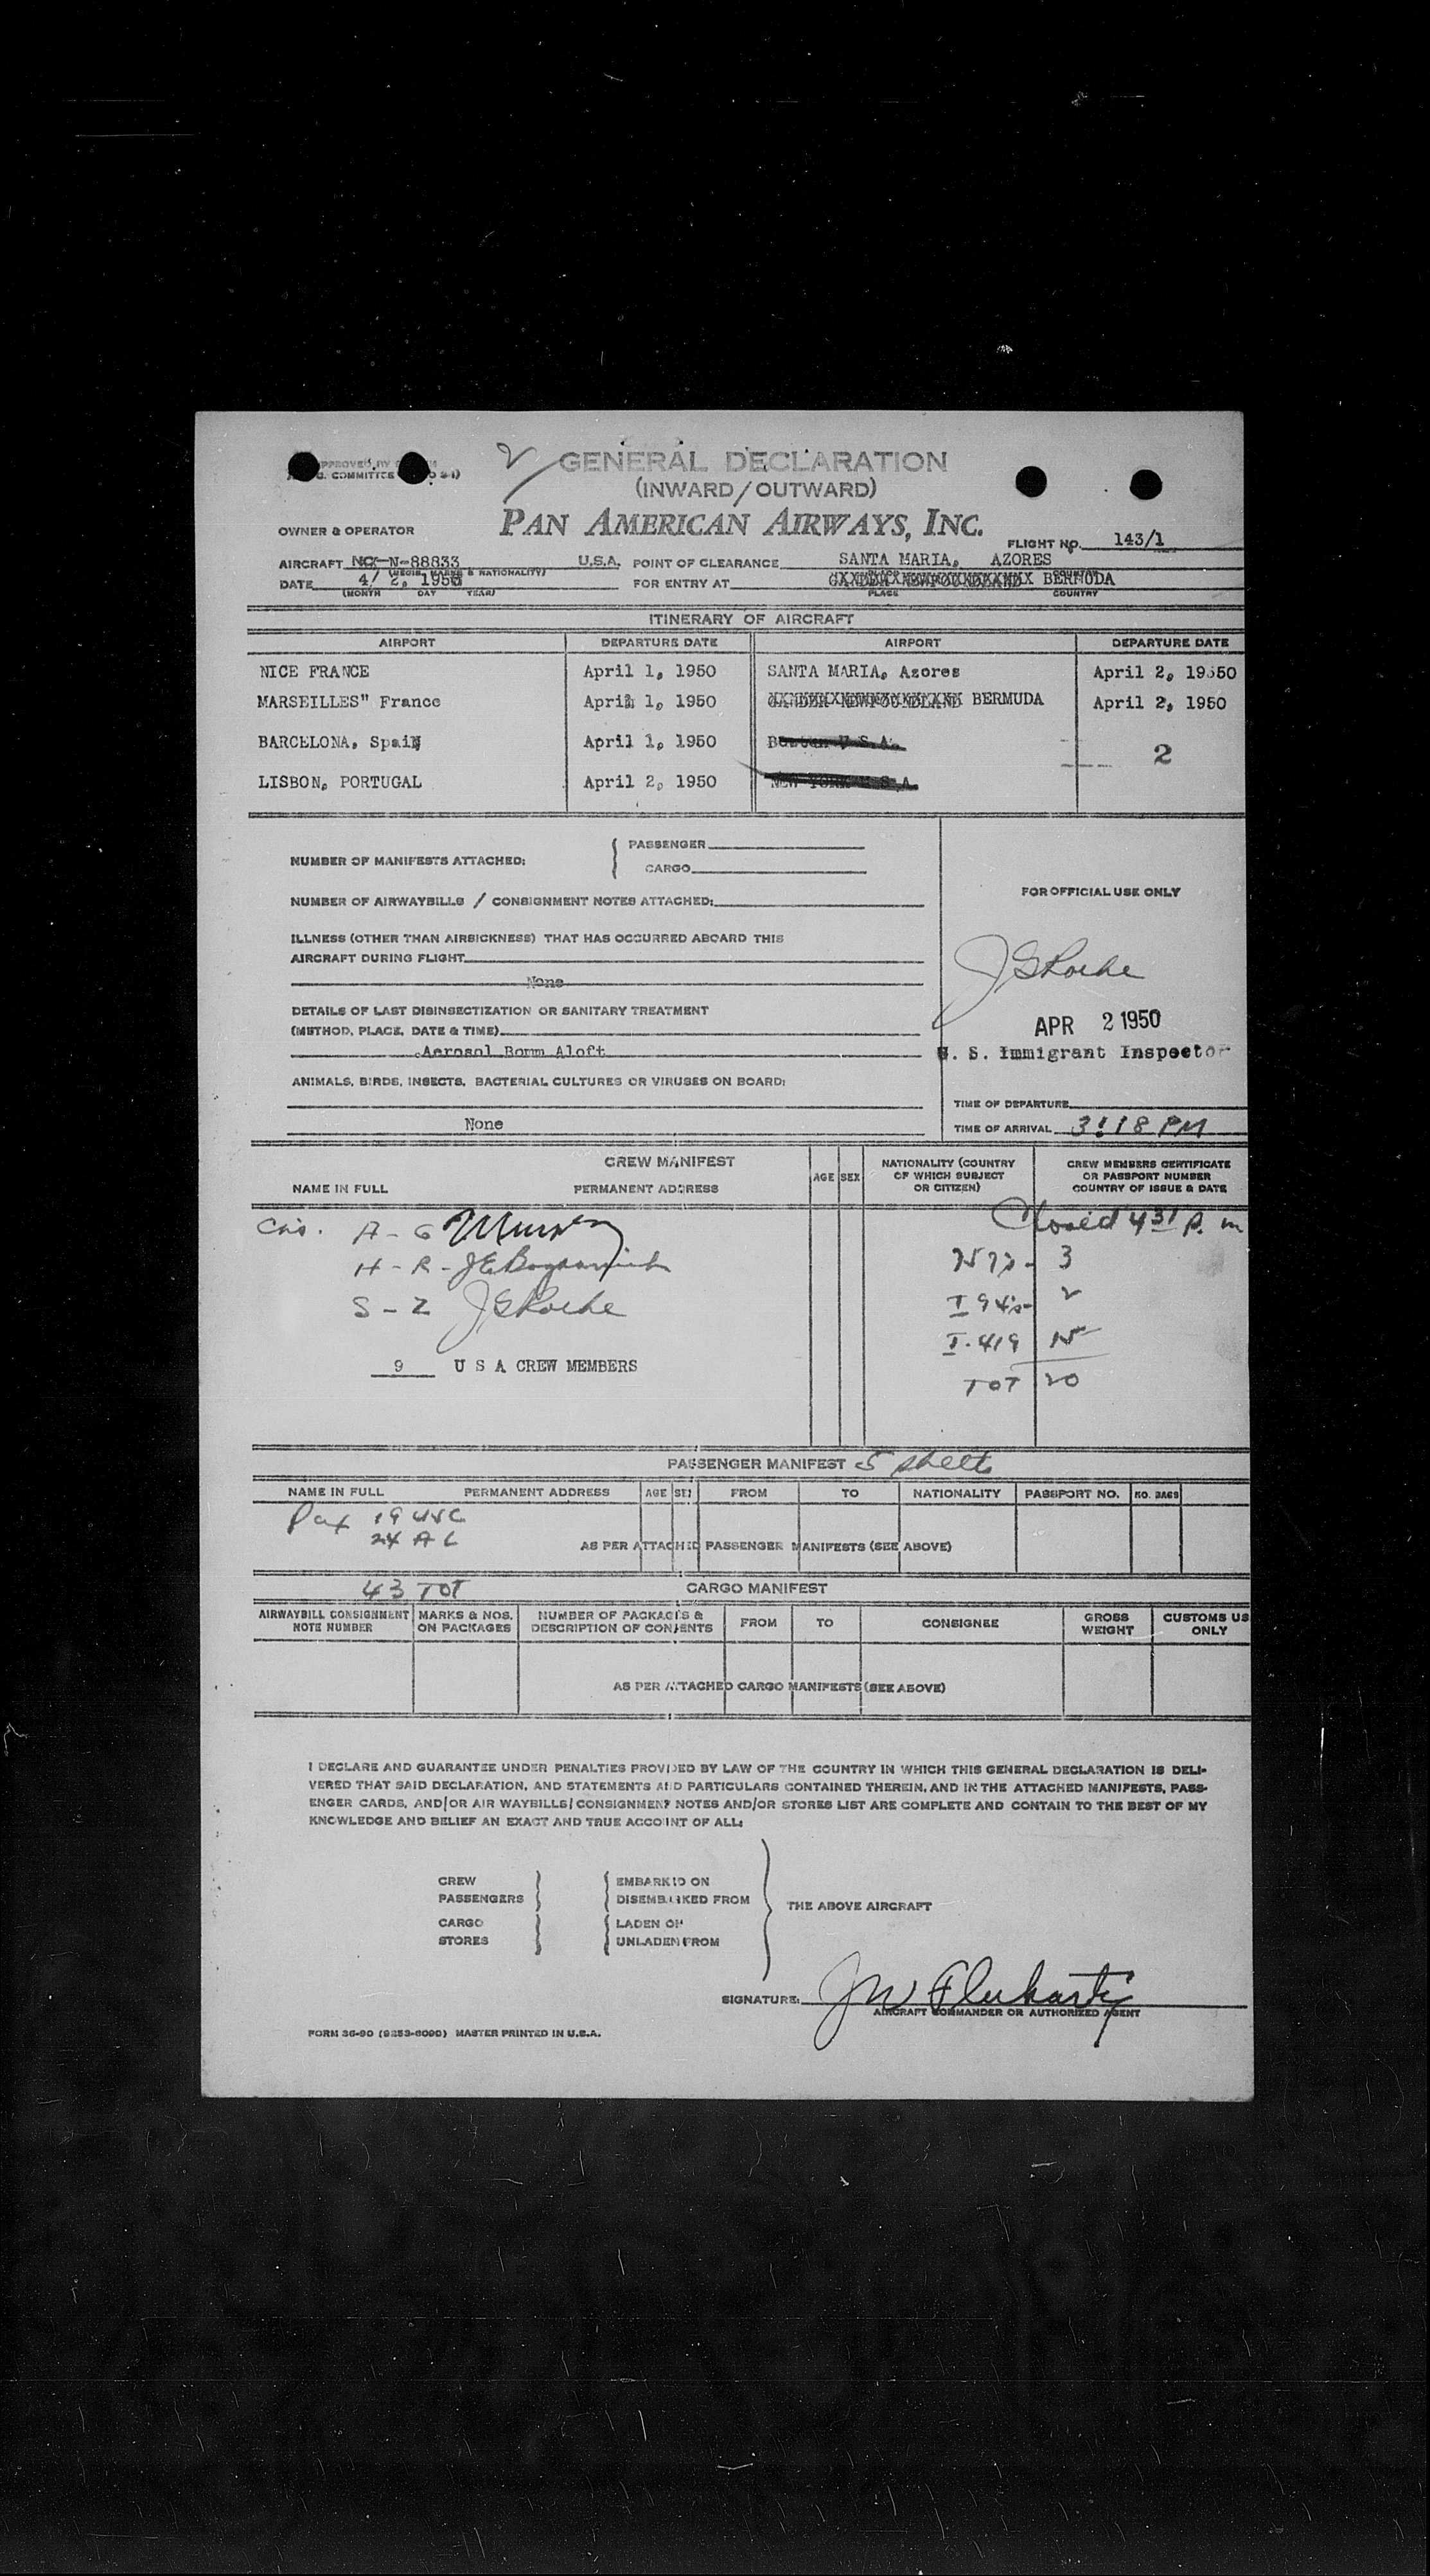 GENERAL DECLARATION
(INWARD/OUTWARD)
OWNER & OPERATOR PAN AMERICAN AIRWAYS, INC. FLIGHT NO. 143/1
AIRCRAFT NC-N-88833 U.S.A. POINT OF CLEARANCE SANTA MARIA, AZORES
DATE 4/ 2, 1950 FOR ENTRY AT BERMUDA
(MONTH DAY YEAR) PLACE COUNTRY
ITINERARY OF AIRCRAFT
AIRPORT DEPARTURE DATE AIRPORT DEPARTURE DATE
NICE FRANCE April 1, 1950 SANTA MARIA, Azores April 2, 19550
MARSEILLES" France April 1, 1950 BERMUDA April 2, 1950
BARCELONA, Spain April 1, 1950 Boston U.S.A. 2
LISBON, PORTUGAL April 2, 1950 NEW YORK U.S.A.
NUMBER OF MANIFESTS ATTACHED: PASSENGER
CARGO
NUMBER OF AIRWAYBILLS / CONSIGNMENT NOTES ATTACHED:
FOR OFFICIAL USE ONLY
ILLNESS (OTHER THAN AIRSICKNESS) THAT HAS OCCURRED ABOARD THIS
AIRCRAFT DURING FLIGHT
None
JGRoche
DETAILS OF LAST DISINSECTIZATION OR SANITARY TREATMENT
(METHOD, PLACE, DATE & TIME)
APR 2 1950
Aerosol Bomm Aloft
U. S. Immigrant Inspector
ANIMALS, BIRDS, INSECTS, BACTERIAL CULTURES OR VIRUSES ON BOARD:
TIME OF DEPARTURE
None
TIME OF ARRIVAL 3:18 PM
CREW MANIFEST
NAME IN FULL PERMANENT ADDRESS
AGE SEX
NATIONALITY (COUNTRY
OF WHICH SUBJECT
OR CITIZEN)
CREW MEMBERS CERTIFICATE
OR PASSPORT NUMBER
COUNTRY OF ISSUE & DATE
A - G Closed 4 31 P. m
H - R - 3
S - Z JGRoche I 94's- 2
I-419 15
9 U S A CREW MEMBERS
TOT 20
PASSENGER MANIFEST 5 sheets
NAME IN FULL PERMANENT ADDRESS AGE SEX FROM TO NATIONALITY PASSPORT NO. NO. BAGS
Pax 19 USC
24 AL
AS PER ATTACHED PASSENGER MANIFESTS (SEE ABOVE)
43 TOT
CARGO MANIFEST
AIRWAYBILL CONSIGNMENT
NOTE NUMBER
MARKS & NOS.
ON PACKAGES
NUMBER OF PACKAGES &
DESCRIPTION OF CONTENTS
FROM TO CONSIGNEE
GROSS
WEIGHT
CUSTOMS US
ONLY
AS PER ATTACHED CARGO MANIFESTS (SEE ABOVE)
I DECLARE AND GUARANTEE UNDER PENALTIES PROVIDED BY LAW OF THE COUNTRY IN WHICH THIS GENERAL DECLARATION IS DELI-
VERED THAT SAID DECLARATION, AND STATEMENTS AND PARTICULARS CONTAINED THEREIN, AND IN THE ATTACHED MANIFESTS, PASS-
ENGER CARDS, AND/OR AIR WAYBILLS/CONSIGNMENT NOTES AND/OR STORES LIST ARE COMPLETE AND CONTAIN TO THE BEST OF MY
KNOWLEDGE AND BELIEF AN EXACT AND TRUE ACCOUNT OF ALL:
CREW EMBARKED ON
PASSENGERS DISEMBARKED FROM
THE ABOVE AIRCRAFT
CARGO LADEN ON
STORES UNLADEN FROM
SIGNATURE: JW Fluharty
AIRCRAFT COMMANDER OR AUTHORIZED AGENT
FORM 36-90 (9253-6090) MASTER PRINTED IN U.S.A.